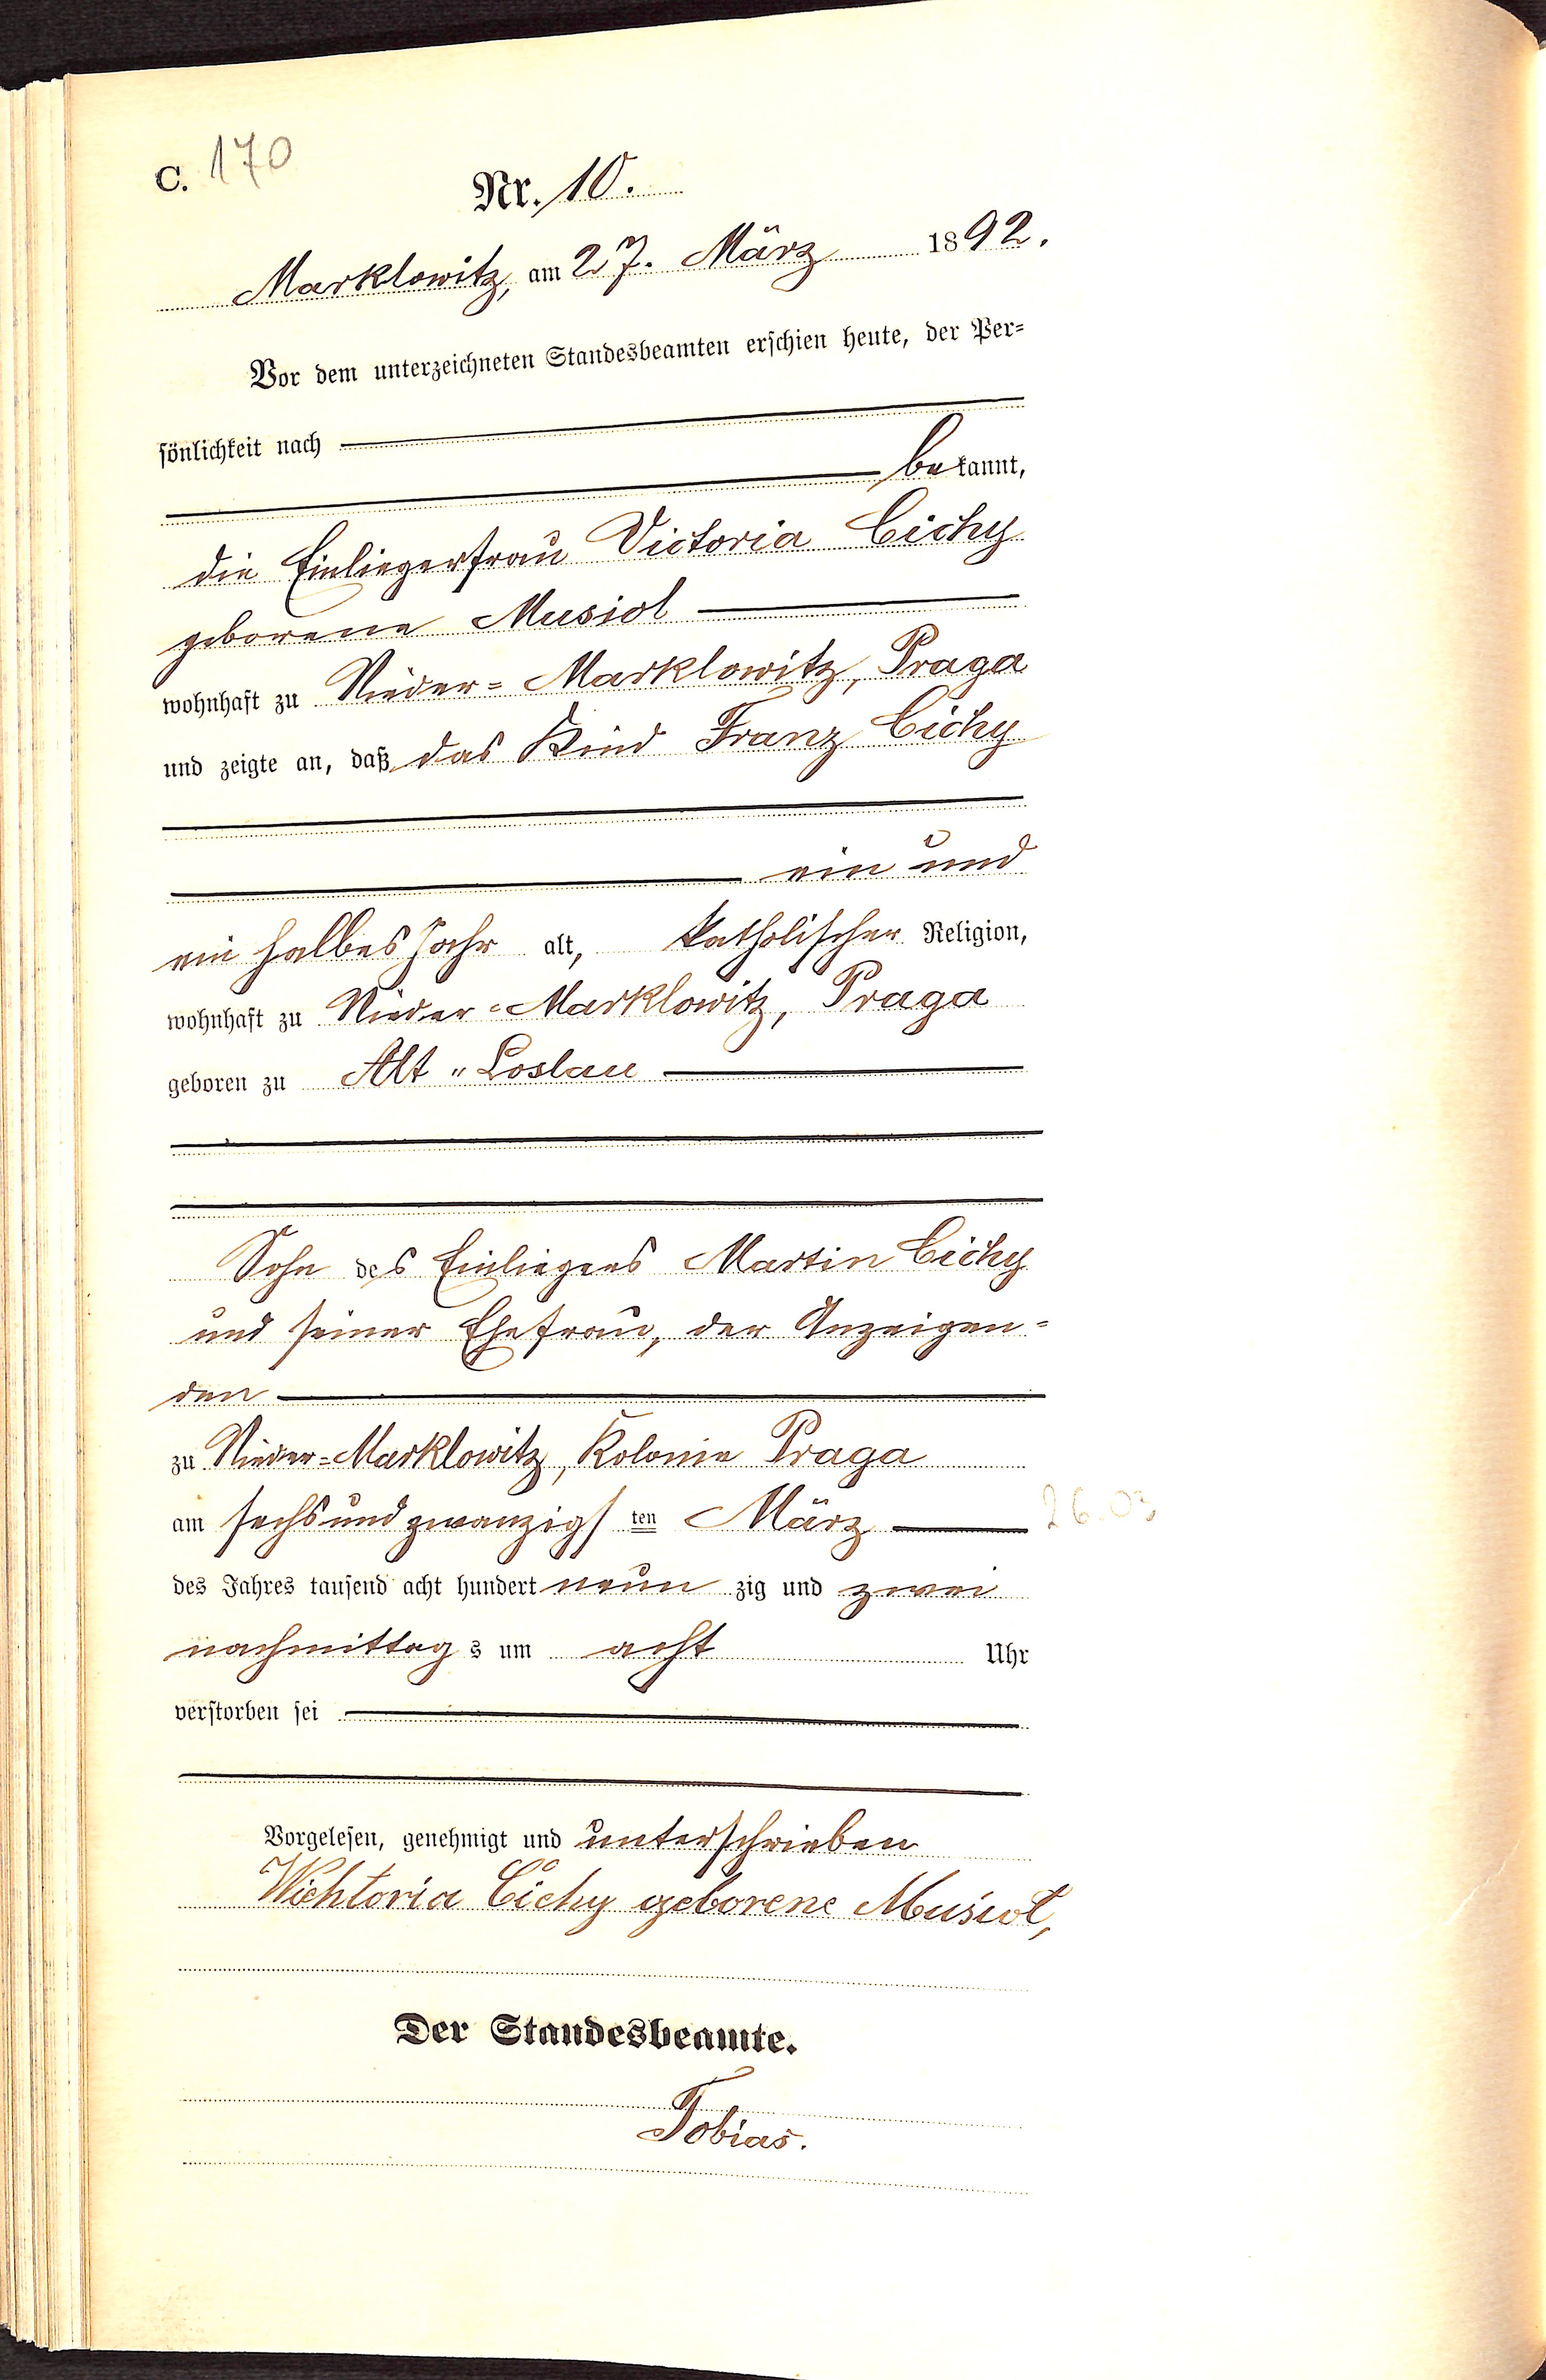 C. 170
Nr. 10.
Marklowitz, am 27. März 1892.
Vor dem unterzeichneten Standesbeamten erschien heute, der Per=
sönlichkeit nach
bekannt,
die Einliegerfrau Victoria Cichy
geborene Musiol
wohnhaft zu Nieder=Marklowitz, Praga
und zeigte an, daß das Kind Franz Cichy
ein und
ein halbes Jahr alt, katholischer Religion,
wohnhaft zu Nieder=Marklowitz, Praga
geboren zu Alt=Loslau
Sohn des Einliegers Martin Cichy
und seiner Ehefrau, der Anzeigen=
den
zu Nieder=Marklowitz, Kolonie Praga
am sechsundzwanzigsten März 26.03
des Jahres tausend acht hundert neunzig und zwei
nachmittags um acht Uhr
verstorben sei
Vorgelesen, genehmigt und unterschrieben
Wichtoria Cichy geborene Musiol,
Der Standesbeamte.
Tobias.